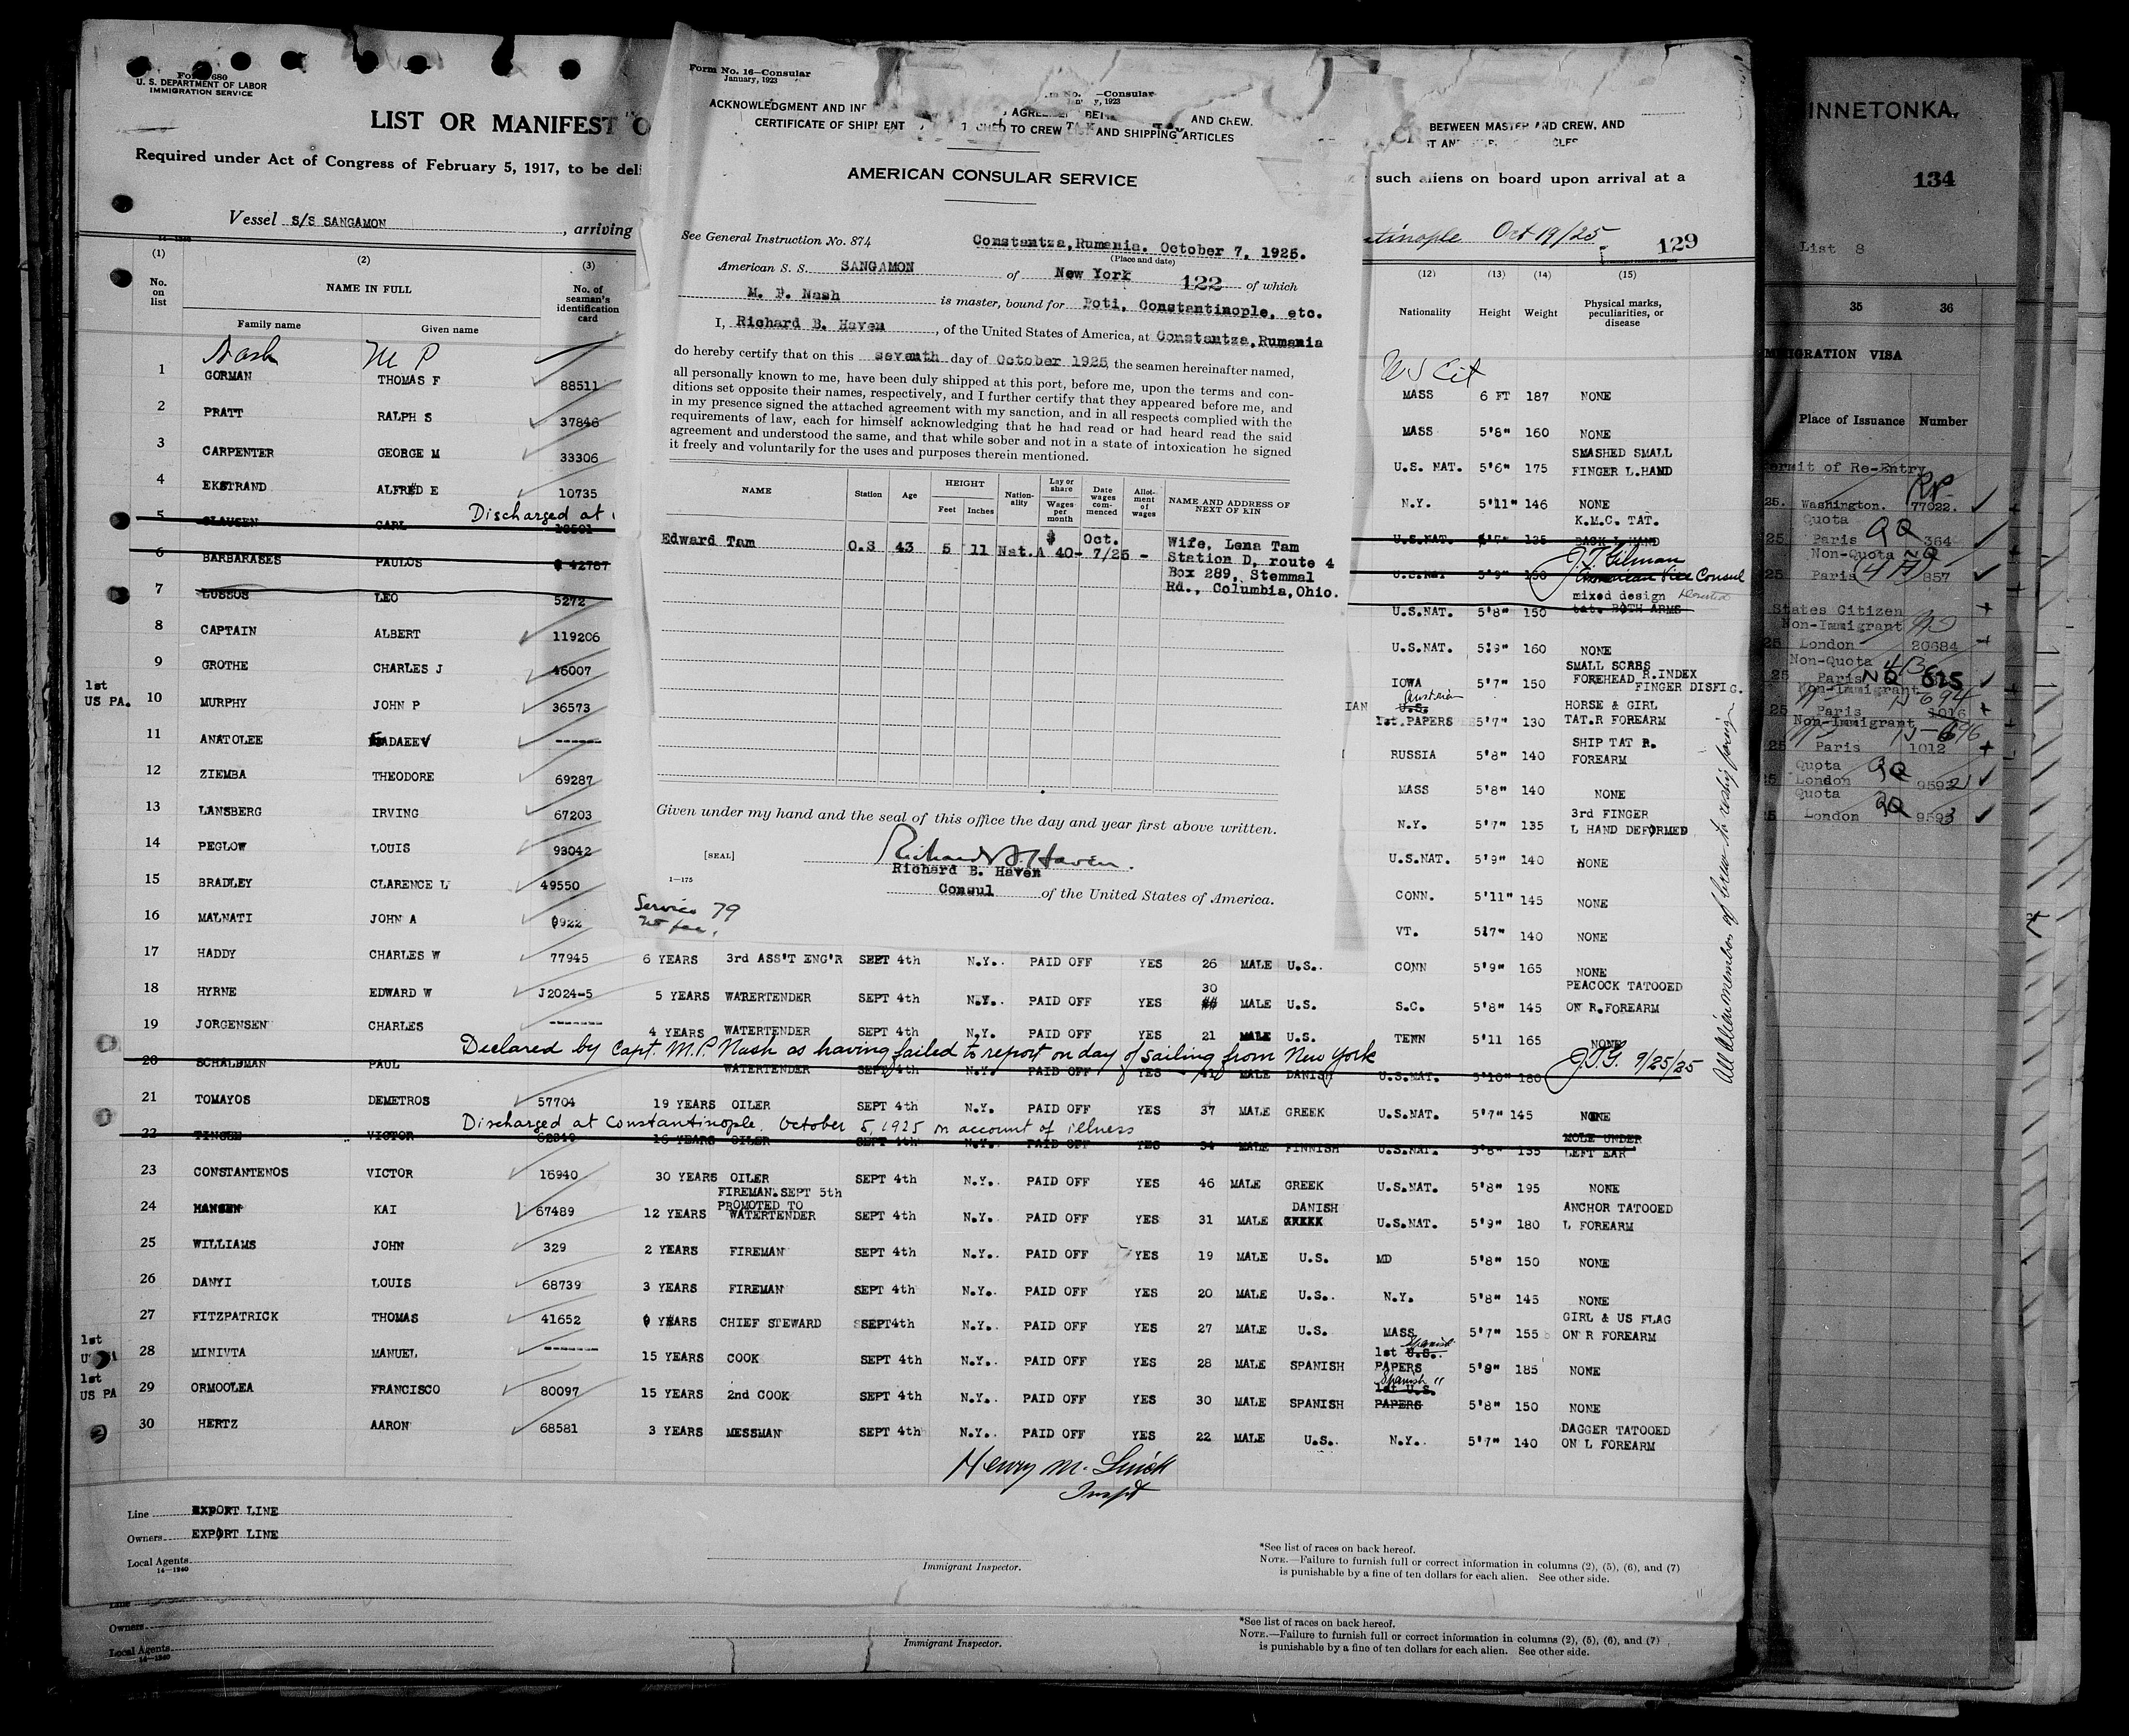 Form 680
U. S. DEPARTMENT OF LABOR
IMMIGRATION SERVICE
LIST OR MANIFEST O
Required under Act of Congress of February 5, 1917, to be deli
such aliens on board upon arrival at a
Vessel S/S SANGAMON , arriving
tinople Oct 19/25
129
Form No. 16—Consular
January, 1923
—Consular
1923
ACKNOWLEDGMENT AND
AND CREW.
CERTIFICATE OF SHIPMENT
TO CREW
AND SHIPPING ARTICLES
BETWEEN MASTER AND CREW, AND
AMERICAN CONSULAR SERVICE
See General Instruction No. 874
Constantza, Rumania. October 7, 1925.
(Place and date)
American S. S. SANGAMON of New York 122 of which
M. P. Nash is master, bound for Poti, Constantinople, etc.
I, Richard B. Haven , of the United States of America, at Constantza, Rumania
do hereby certify that on this seventh day of October 1925, the seamen hereinafter named,
all personally known to me, have been duly shipped at this port, before me, upon the terms and con-
ditions set opposite their names, respectively, and I further certify that they appeared before me, and
in my presence signed the attached agreement with my sanction, and in all respects complied with the
requirements of law, each for himself acknowledging that he had read or had heard read the said
agreement and understood the same, and that while sober and not in a state of intoxication he signed
it freely and voluntarily for the uses and purposes therein mentioned.
NAME Station Age HEIGHT Feet Inches Nation-ality Lay or share Wages per month Date wages com-menced Allot-ment of wages NAME AND ADDRESS OF NEXT OF KIN
Edward Tam O.S 43 5 11 Nat.A $ 40- Oct. 7/25 - Wife, Lena Tam
Station D, route 4
Box 289, Stemmal
Rd., Columbia, Ohio.
Given under my hand and the seal of this office the day and year first above written.
[SEAL]
Richard B. Haven
Richard B. Haven
1—175
Consul of the United States of America.
Service 79
No fee.
(1) (2) (3) (12) (13) (14) (15)
No. on list NAME IN FULL No. of seaman's identification card Nationality Height Weight Physical marks, peculiarities, or disease
Family name Given name
Nash M P US Cit
1 GORMAN THOMAS F 88511 MASS 6 FT 187 NONE
2 PRATT RALPH S 37846 MASS 5'8" 160 NONE
3 CARPENTER GEORGE M 33306 U.S. NAT. 5'6" 175 SMASHED SMALL FINGER L.HAND
4 EKSTRAND ALFRED E 10735 N.Y. 5'11" 146 NONE
Discharged at
5 CLAUSEN CARL U.S.NAT. 135 K.M.C. TAT. BACK L HAND
J.T. Gilman
American Vice Consul
6 BARBARASES PAULOS 42787 5'9"
7 LUSSOS LEO 5272 U.S.NAT. 5'8" 150 mixed design tat. BOTH ARMS
8 CAPTAIN ALBERT 119206 U.S.NAT. 5'9" 160 NONE
9 GROTHE CHARLES J 46007 IOWA 5'7" 150 SMALL SCARS FOREHEAD R.INDEX FINGER DISFIG.
1st
US PA.
10 MURPHY JOHN P 36573 IAN Austrian U.S. 1st.PAPERS 5'7" 130 HORSE & GIRL TAT.R FOREARM
11 ANATOLEE FADAEEV ------ RUSSIA 5'8" 140 SHIP TAT R. FOREARM
12 ZIEMBA THEODORE 69287 MASS 5'8" 140 NONE
13 LANSBERG IRVING 67203 N.Y. 5'7" 135 3rd FINGER L HAND DEFORMED
14 PEGLOW LOUIS 93042 U.S.NAT. 5'9" 140 NONE
15 BRADLEY CLARENCE L 49550 CONN. 5'11" 145 NONE
16 MALNATI JOHN A 9922 VT. 5'7" 140 NONE
17 HADDY CHARLES W 77945 6 YEARS 3rd ASS'T ENG'R SEPT 4th N.Y. PAID OFF YES 26 MALE U.S. CONN 5'9" 165 NONE
18 HYRNE EDWARD W J2024-5 5 YEARS WATERTENDER SEPT 4th N.Y. PAID OFF YES 30 MALE U.S. S.C. 5'8" 145 PEACOCK TATOOED ON R.FOREARM
19 JORGENSEN CHARLES ------ 4 YEARS WATERTENDER SEPT 4th N.Y. PAID OFF YES 21 MALE U.S. TENN 5'11 165 NONE
Declared by Capt. M.P. Nash as having failed to report on day of sailing from New York J.T.G. 9/25/25
20 SCHALBMAN PAUL WATERTENDER SEPT 4th N.Y. PAID OFF YES MALE DANISH U.S.NAT. 5'10" 180
21 TOMAYOS DEMETROS 57704 19 YEARS OILER SEPT 4th N.Y. PAID OFF YES 37 MALE GREEK U.S.NAT. 5'7" 145 NONE
Discharged at Constantinople. October 5, 1925 on account of illness
22 VICTOR 16 YEARS OILER SEPT 4th N.Y. PAID OFF YES 34 MALE FINNISH U.S.NAT. 5'8" 135 MOLE UNDER LEFT EAR
23 CONSTANTENOS VICTOR 16940 30 YEARS OILER SEPT 4th N.Y. PAID OFF YES 46 MALE GREEK U.S.NAT. 5'8" 195 NONE
24 HANSEN KAI 67489 12 YEARS FIREMAN.SEPT 5th PROMOTED TO WATERTENDER SEPT 4th N.Y. PAID OFF YES 31 MALE DANISH U.S.NAT. 5'9" 180 ANCHOR TATOOED L FOREARM
25 WILLIAMS JOHN 329 2 YEARS FIREMAN SEPT 4th N.Y. PAID OFF YES 19 MALE U.S. MD 5'8" 150 NONE
26 DANYI LOUIS 68739 3 YEARS FIREMAN SEPT 4th N.Y. PAID OFF YES 20 MALE U.S. N.Y. 5'8" 145 NONE
27 FITZPATRICK THOMAS 41652 YEARS CHIEF STEWARD SEPT4th N.Y. PAID OFF YES 27 MALE U.S. MASS 5'7" 155 GIRL & US FLAG ON R FOREARM
1st
28 MINIVTA MANUEL ------ 15 YEARS COOK SEPT 4th N.Y. PAID OFF YES 28 MALE SPANISH Spanish 1st U.S. PAPERS 5'8" 185 NONE
1st
US PA
29 ORMOOLEA FRANCISCO 80097 15 YEARS 2nd COOK SEPT 4th N.Y. PAID OFF YES 30 MALE SPANISH Spanish " 1st U.S. PAPERS 5'8" 150 NONE
30 HERTZ AARON 68581 3 YEARS MESSMAN SEPT 4th N.Y. PAID OFF YES 22 MALE U.S. N.Y. 5'7" 140 DAGGER TATOOED ON L FOREARM
All alien members of crew to reship foreign
Henry M.
Inspt
Line EXPORT LINE
Owners EXPORT LINE
Local Agents
14—1240
Immigrant Inspector.
*See list of races on back hereof.
NOTE.—Failure to furnish full or correct information in columns (2), (5), (6), and (7)
is punishable by a fine of ten dollars for each alien. See other side.
Line
Owners
Local Agents
14—1240
Immigrant Inspector.
*See list of races on back hereof.
NOTE.—Failure to furnish full or correct information in columns (2), (5), (6), and (7)
is punishable by a fine of ten dollars for each alien. See other side.
INNETONKA.
134
List 8
35 36
MIGRATION VISA
Place of Issuance Number
ermit of Re-Entry
25. Washington. 77022.
Quota QQ
25 Paris 364
Non-Quota NQ
25 Paris 857
States Citizen
Non-Immigrant
25 London 20684
Non-Quota
25 Paris NQ 625
Non-Immigrant
25 Paris 1016
Non-Immigrant
25 Paris 1012
Quota QQ
25 London 9592
Quota
25 London QQ 9593